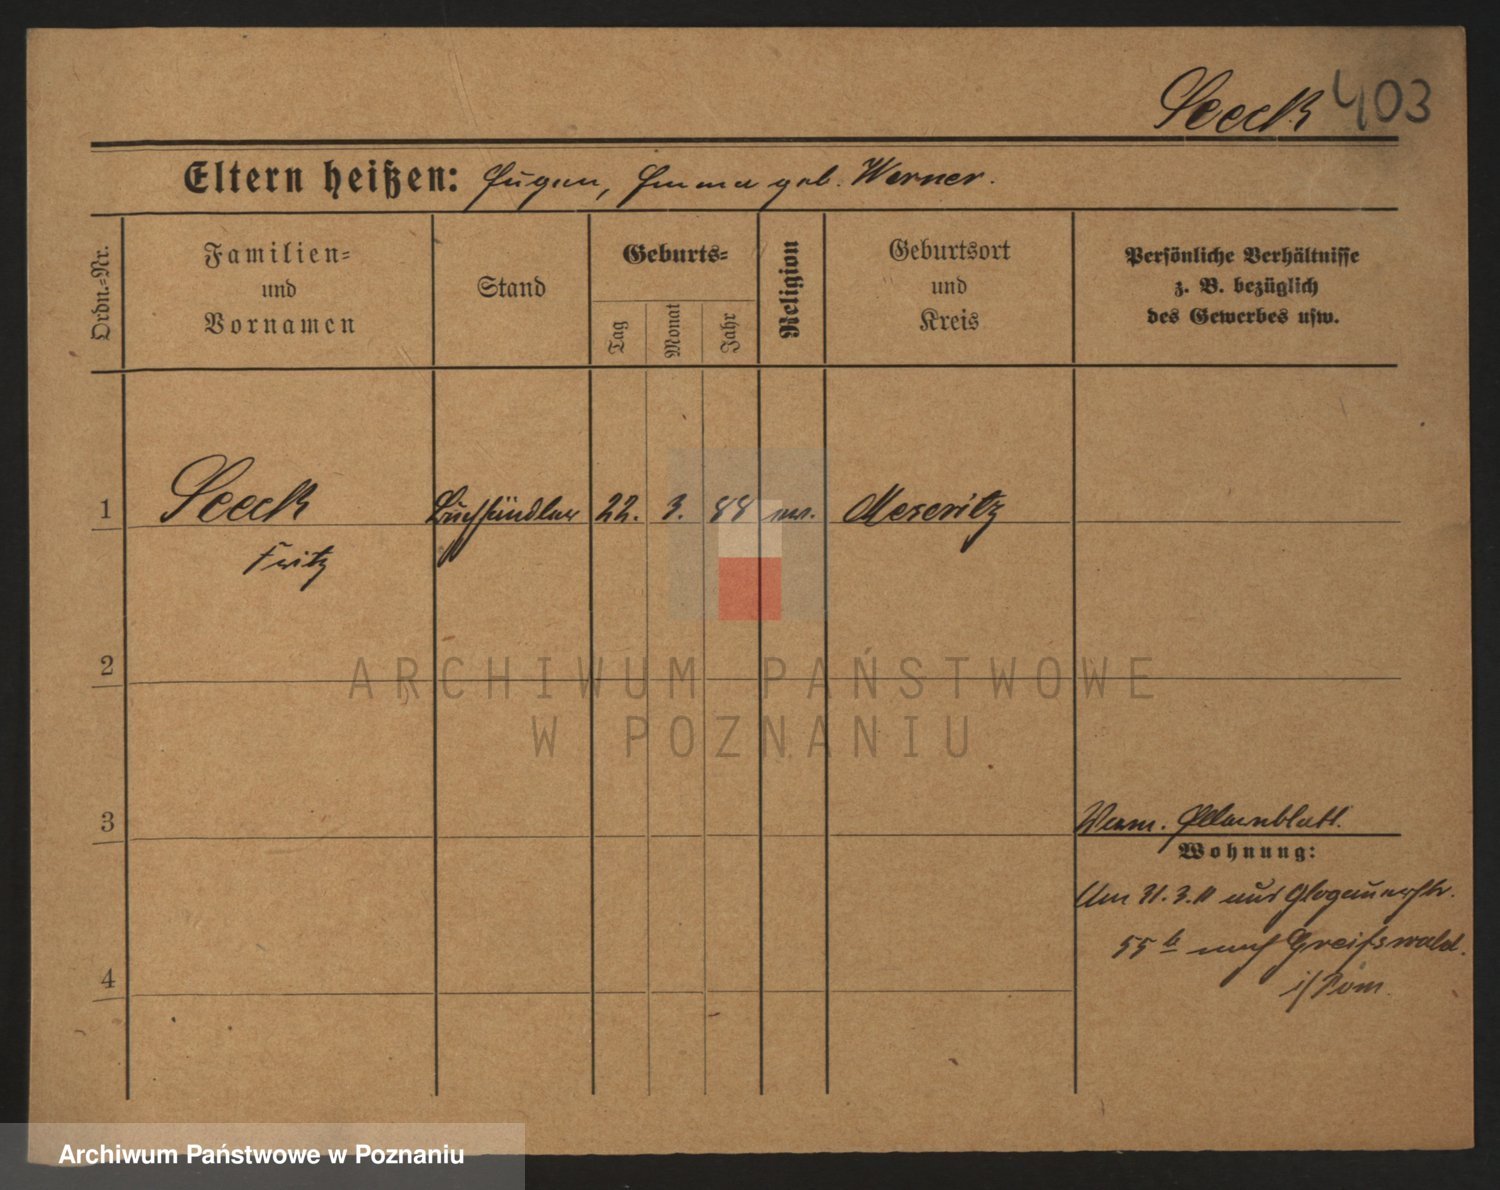 Seeck 403
Eltern heißen: Eugen, Emma geb. Werner.
Ordn.=Nr.
Familien=
und
Vornamen
Stand
Geburts=
Tag
Monat
Jahr
Religion
Geburtsort
und
Kreis
Persönliche Verhältnisse
z. B. bezüglich
des Gewerbes usw.
1 Seeck Buchhändler 22. 3. 88 ev. Meseritz
Fritz
2
ARCHIWUM PAŃSTWOWE
W POZNANIU
3
Elternblatt.
Wohnung:
Um 31.3.11 aus Glogauerstr.
55 b nach Greifswald.
i/Pom.
4
Archiwum Państwowe w Poznaniu